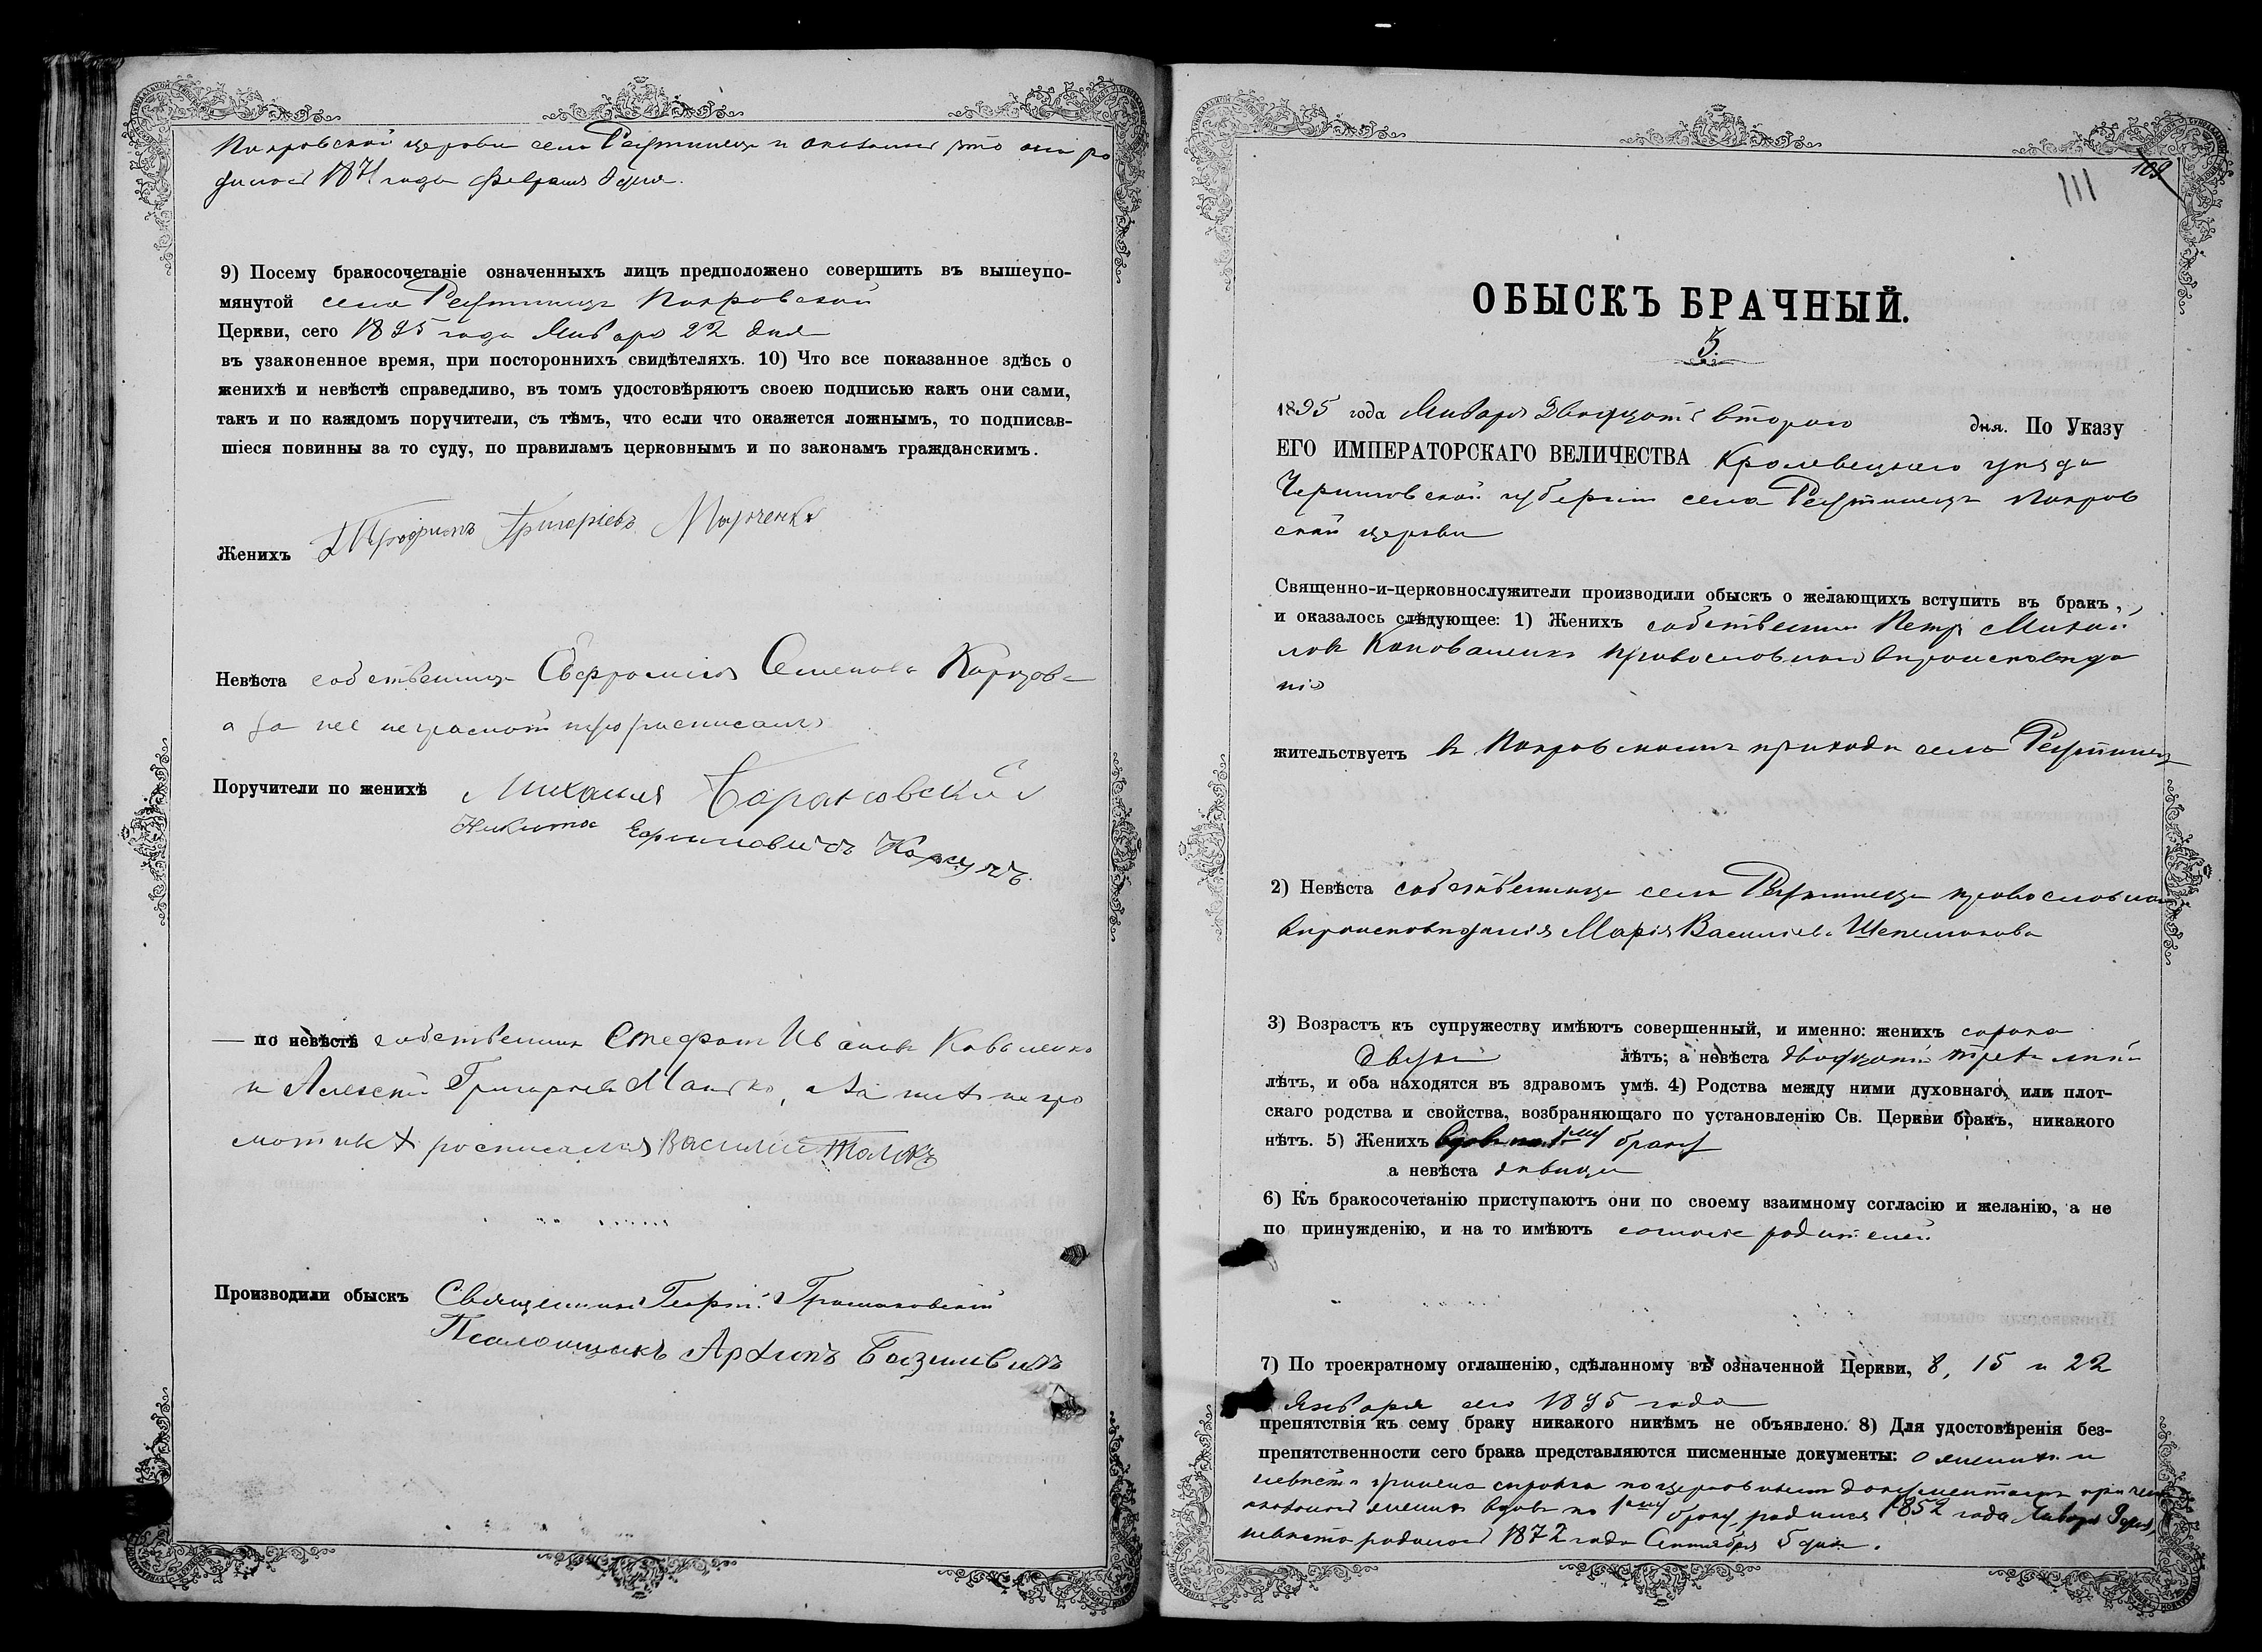 Покровской церкви села Реутинецъ и оказалось что она ро
дилась 1871 года Февраля 8 дня.
9) Посему бракосочетаніе означенныхъ лицъ предположено совершить въ вышеупо-
мянутой села Реутинецъ Покровской
Церкви, сего 1895 года Января 22 дня
въ узаконенное время, при постороннихъ свидѣтеляхъ. 10) Что все показанное здѣсь о
женихѣ и невѣстѣ справедливо, въ томъ удостовѣряютъ своею подписью какъ они сами,
такъ и по каждомъ поручители, съ тѣмъ, что если что окажется ложнымъ, то подписав-
шіеся повинны за то суду, по правиламъ церковнымъ и по законамъ гражданскимъ.
Женихъ Трофимъ Григоріевъ Марченко
Невѣста собственница Евфросинія Семенова
а за нее неграмотную росписался
Поручители по женихѣ Михаилъ Барановскій
Никита Ефимовичъ Корсунъ
— по невѣстѣ собственник Стефан Иванов Коваленко
и Алексей Григорьев, а за них негра
мотных росписался Василий
Производили обыскъ Священник Георгій Громаковский
Псаломщикъ Архипъ Базилевичъ
109
111
ОБЫСКЪ БРАЧНЫЙ.
5.
1895 года Января Двадцать второго дня. По Указу
ЕГО ИМПЕРАТОРСКАГО ВЕЛИЧЕСТВА Кролевецкого уѣзда
Черниговской губерніи села Реутинецъ Покров
ской церкви
Священно-и-церковнослужители производили обыскъ о желающихъ вступить въ бракъ,
и оказалось слѣдующее: 1) Женихъ собственник Петр Михай
лов Коноваленко православного вѣроисповѣда
нія
жительствуетъ в Покровском приходѣ села Реутинец
2) Невѣста собственница села Реутинецъ православнаго
вѣроисповѣданія Марія Василіева Шепелюкова
3) Возрастъ къ супружеству имѣютъ совершенный, и именно: женихъ сорока
двухъ лѣтъ; а невѣста двадцати трех лѣт
лѣтъ, и оба находятся въ здравомъ умѣ. 4) Родства между ними духовнаго, или плот-
скаго родства и свойства, возбраняющаго по установленію Св. Церкви бракъ, никакого
нѣтъ. 5) Женихъ вдов по 1му браку
а невѣста дѣвица
6) Къ бракосочетанію приступаютъ они по своему взаимному согласію и желанію, а не
по принужденію, и на то имѣютъ согласіе родителей
7) По троекратному оглашенію, сдѣланному въ означенной Церкви, 8, 15 и 22
Января сего 1895 года
препятствія къ сему браку никакого никѣмъ не объявлено. 8) Для удостовѣренія без-
препятственности сего брака представляются писменные документы: о женихѣ и
невѣстѣ учинена справка по церковным документам при чем
оказалось женихъ вдов по 1му браку, родился 1852 года Января 9 дня,
невѣста родилась 1872 года Сентября 5 дня.